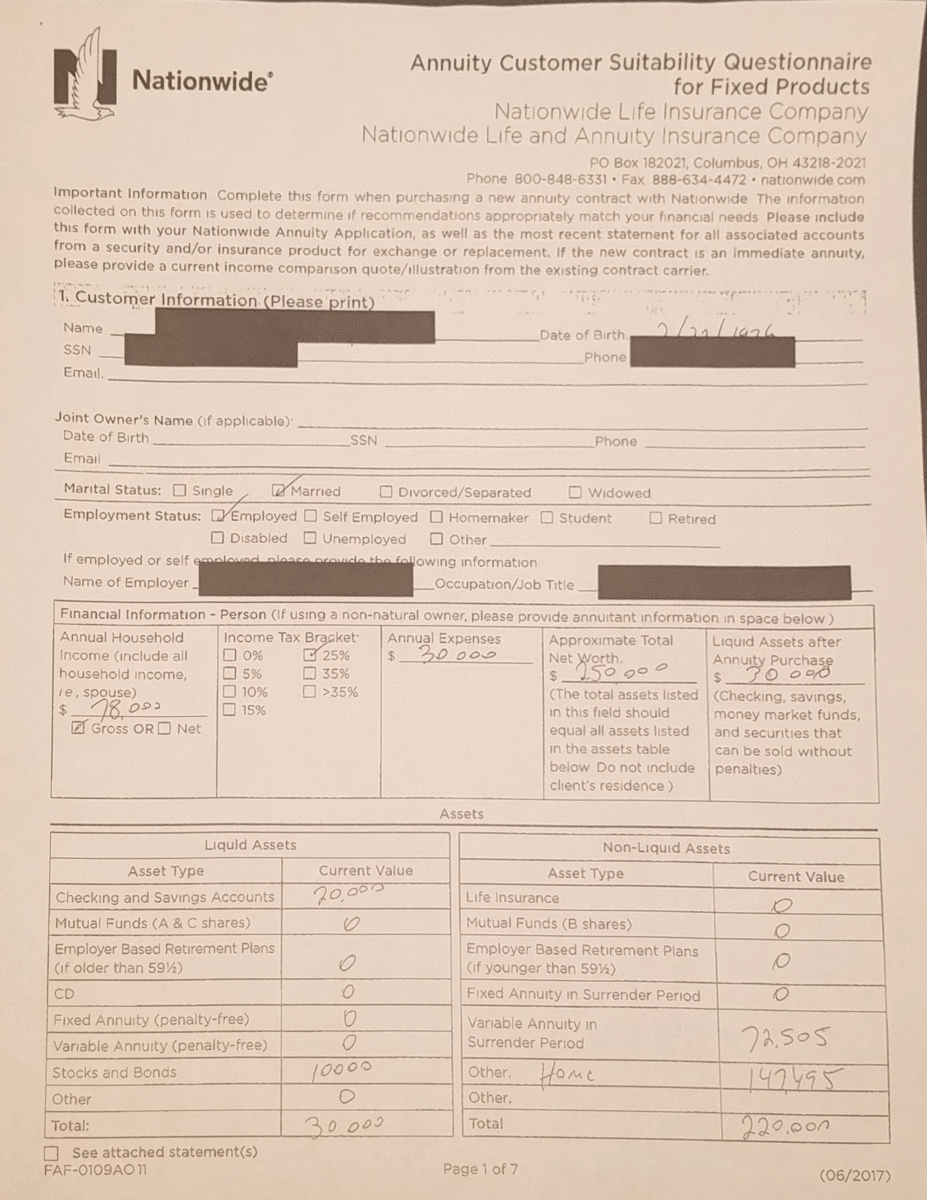 Nationwide®
Annuity Customer Suitability Questionnaire
for Fixed Products
Nationwide Life Insurance Company
Nationwide Life and Annuity Insurance Company
PO Box 182021, Columbus, OH 43218-2021
Phone 800-848-6331 • Fax 888-634-4472 • nationwide com
Important Information Complete this form when purchasing a new annuity contract with Nationwide The information
collected on this form is used to determine if recommendations appropriately match your financial needs Please include
this form with your Nationwide Annuity Application, as well as the most recent statement for all associated accounts
from a security and/or insurance product for exchange or replacement. If the new contract is an immediate annuity,
please provide a current income comparison quote/illustration from the existing contract carrier.
1. Customer Information (Please print)
Name Date of Birth.
SSN Phone
Email.
Joint Owner's Name (if applicable)
Date of Birth SSN Phone
Email
Marital Status: Single Married Divorced/Separated Widowed
Employment Status: Employed Self Employed Homemaker Student Retired
Disabled Unemployed Other
If employed or self employed, please provide the following information
Name of Employer Occupation/Job Title
Financial Information - Person (If using a non-natural owner, please provide annuitant information in space below)
Annual Household
Income (include all
household income,
ie, spouse)
$ 78,000
Gross OR Net
Income Tax Bracket
0% 25%
5% 35%
10% >35%
15%
Annual Expenses
$ 30 000
Approximate Total
Net Worth.
$ 250 000
(The total assets listed
in this field should
equal all assets listed
in the assets table
below Do not include
client's residence)
Liquid Assets after
Annuity Purchase
$ 30 000
(Checking, savings,
money market funds,
and securities that
can be sold without
penalties)
Assets
Liquid Assets
Asset Type Current Value
Checking and Savings Accounts 20,000
Mutual Funds (A & C shares) 0
Employer Based Retirement Plans
(if older than 59½) 0
CD 0
Fixed Annuity (penalty-free) 0
Variable Annuity (penalty-free) 0
Stocks and Bonds 10000
Other 0
Total: 30 000
Non-Liquid Assets
Asset Type Current Value
Life Insurance 0
Mutual Funds (B shares) 0
Employer Based Retirement Plans
(if younger than 59½) 0
Fixed Annuity in Surrender Period 0
Variable Annuity in
Surrender Period 72,505
Other. Home 147,495
Other.
Total 220,000
See attached statement(s)
FAF-0109AO 11 Page 1 of 7 (06/2017)